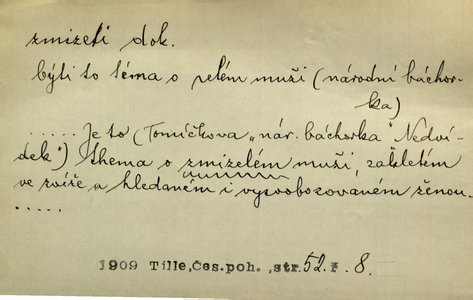 zmizeti dok.
býti to téma o zelém muži (národní báchor-
ka)
..... Je to (Tomíčkova „nár. báchorka" Nedví-
dek") thema o zmizelém muži, zakletém
ve zvíře a hledaném i vysvobozovaném ženou.
.....
1909 Tille, Čes. poh. , str. 52. ř. 8.